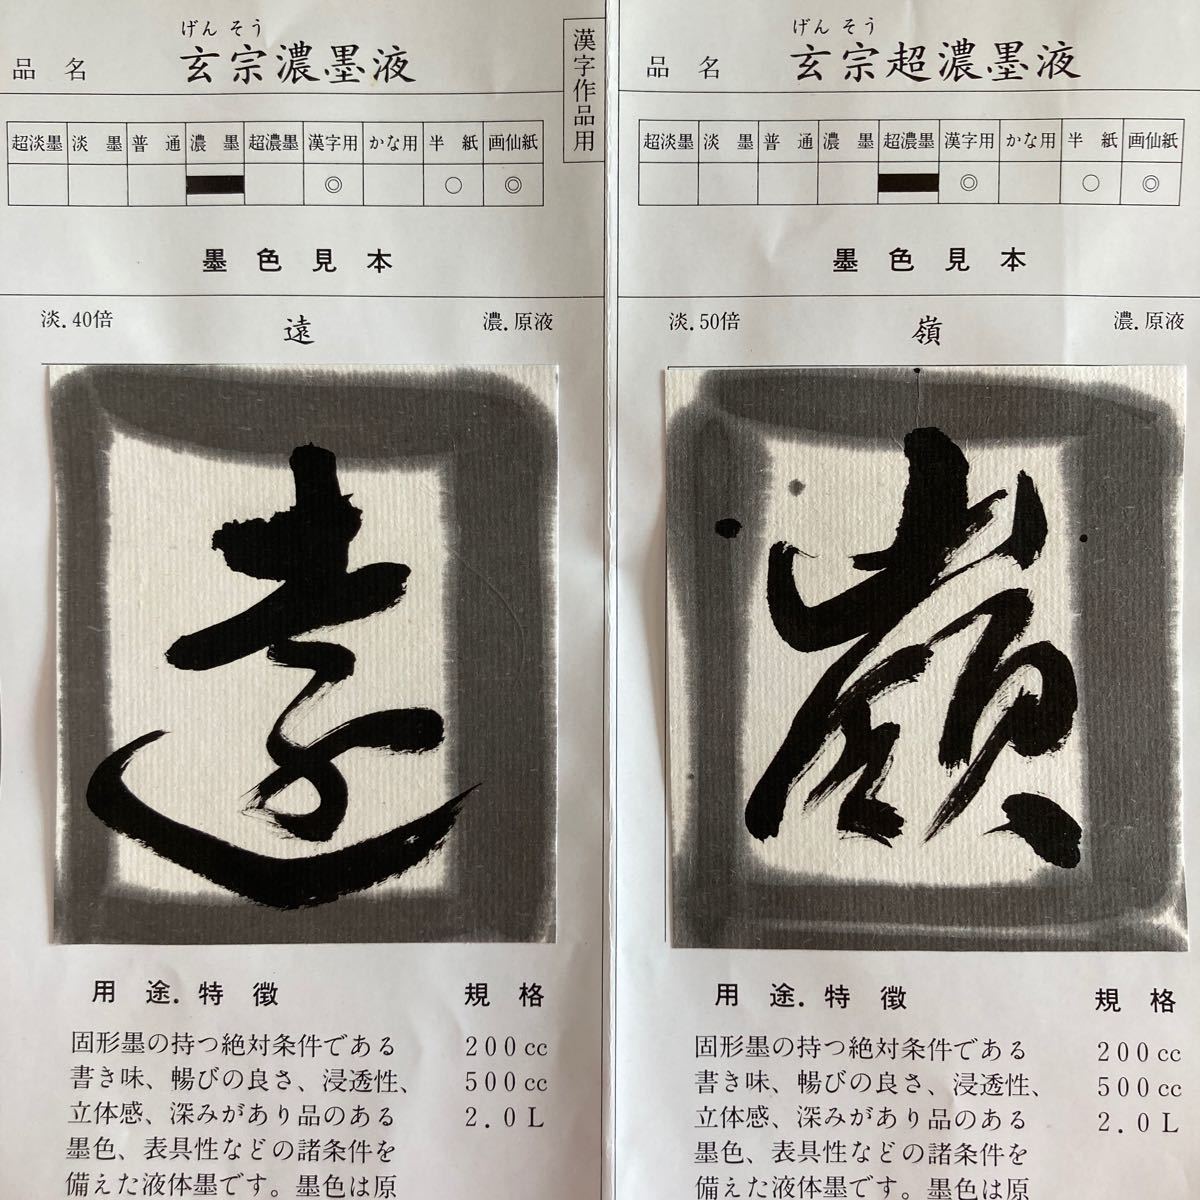 げんそう
品名 玄宗濃墨液
漢字作品用
超淡墨 淡墨 普通 濃墨 超濃墨 漢字用 かな用 半紙 画仙紙
◎ ○ ◎
墨色見本
淡.40倍 遠 濃.原液
遠
用途.特徴 規格
固形墨の持つ絶対条件である 200cc
書き味、暢びの良さ、浸透性、 500cc
立体感、深みがあり品のある 2.0L
墨色、表具性などの諸条件を
備えた液体墨です。墨色は原
げんそう
品名 玄宗超濃墨液
超淡墨 淡墨 普通 濃墨 超濃墨 漢字用 かな用 半紙 画仙紙
◎ ○ ◎
墨色見本
淡.50倍 嶺 濃.原液
嶺
用途.特徴 規格
固形墨の持つ絶対条件である 200cc
書き味、暢びの良さ、浸透性、 500cc
立体感、深みがあり品のある 2.0L
墨色、表具性などの諸条件を
備えた液体墨です。墨色は原